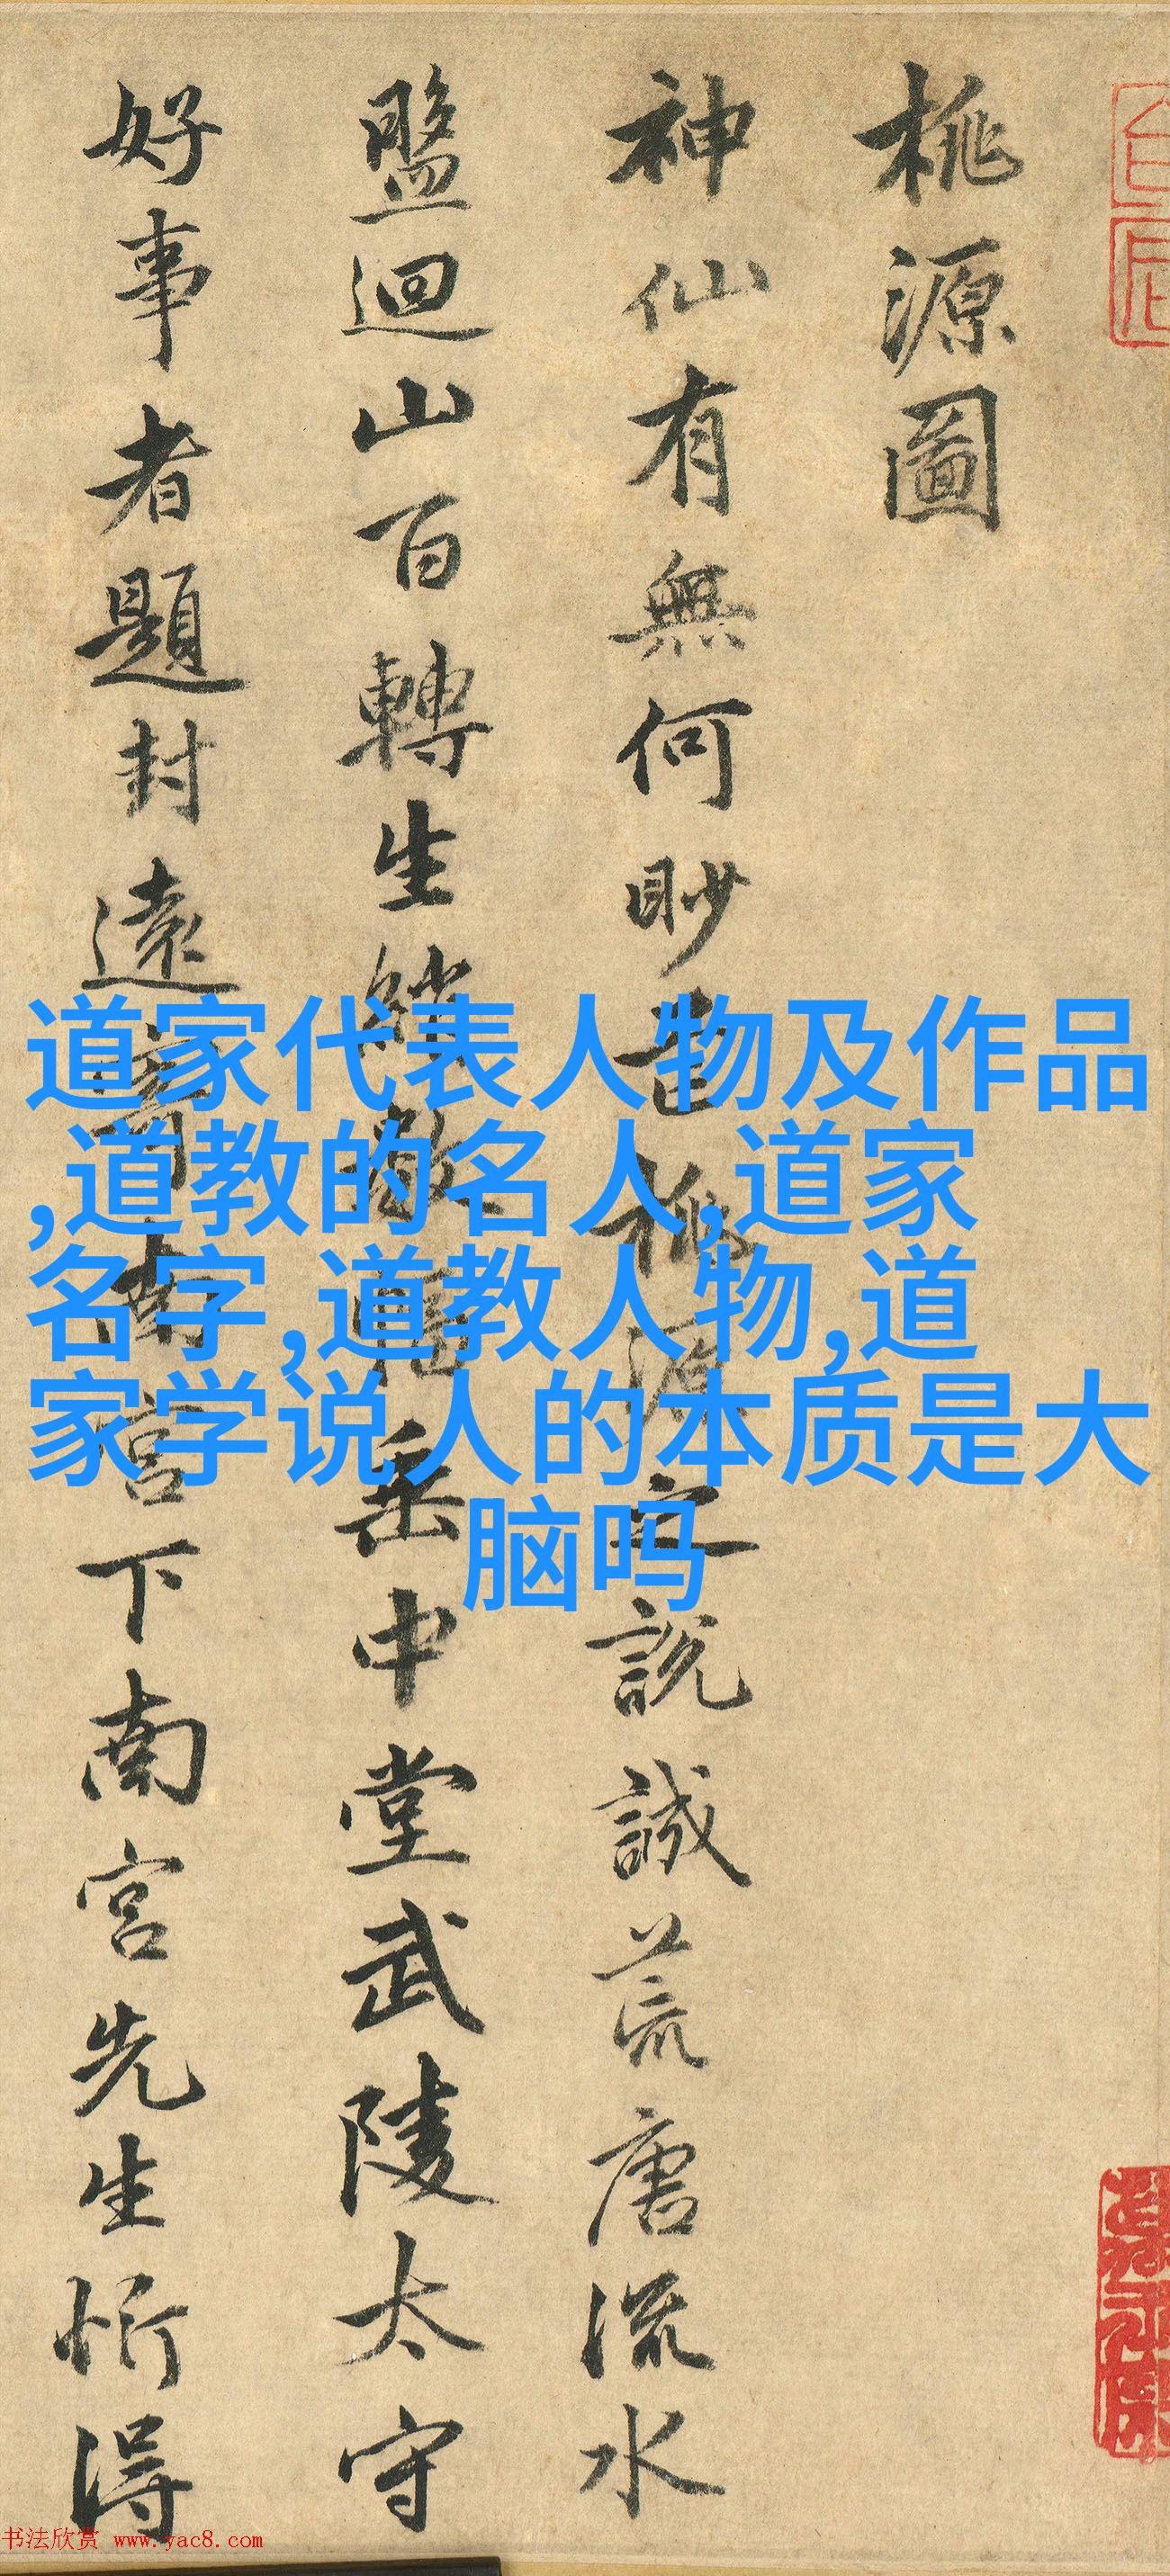 桃源圖
神仙有無何眇芒桃源之說誠荒唐流水
盤迴山百轉生綃數幅垂中堂武陵太守
好事者題封遠寄南宮下南宮先生忻得
道家代表人物及作品
,道教的名人,道家
名字,道教人物,道
家学说人的本质是大
脑吗
书法欣赏 www.yac8.com